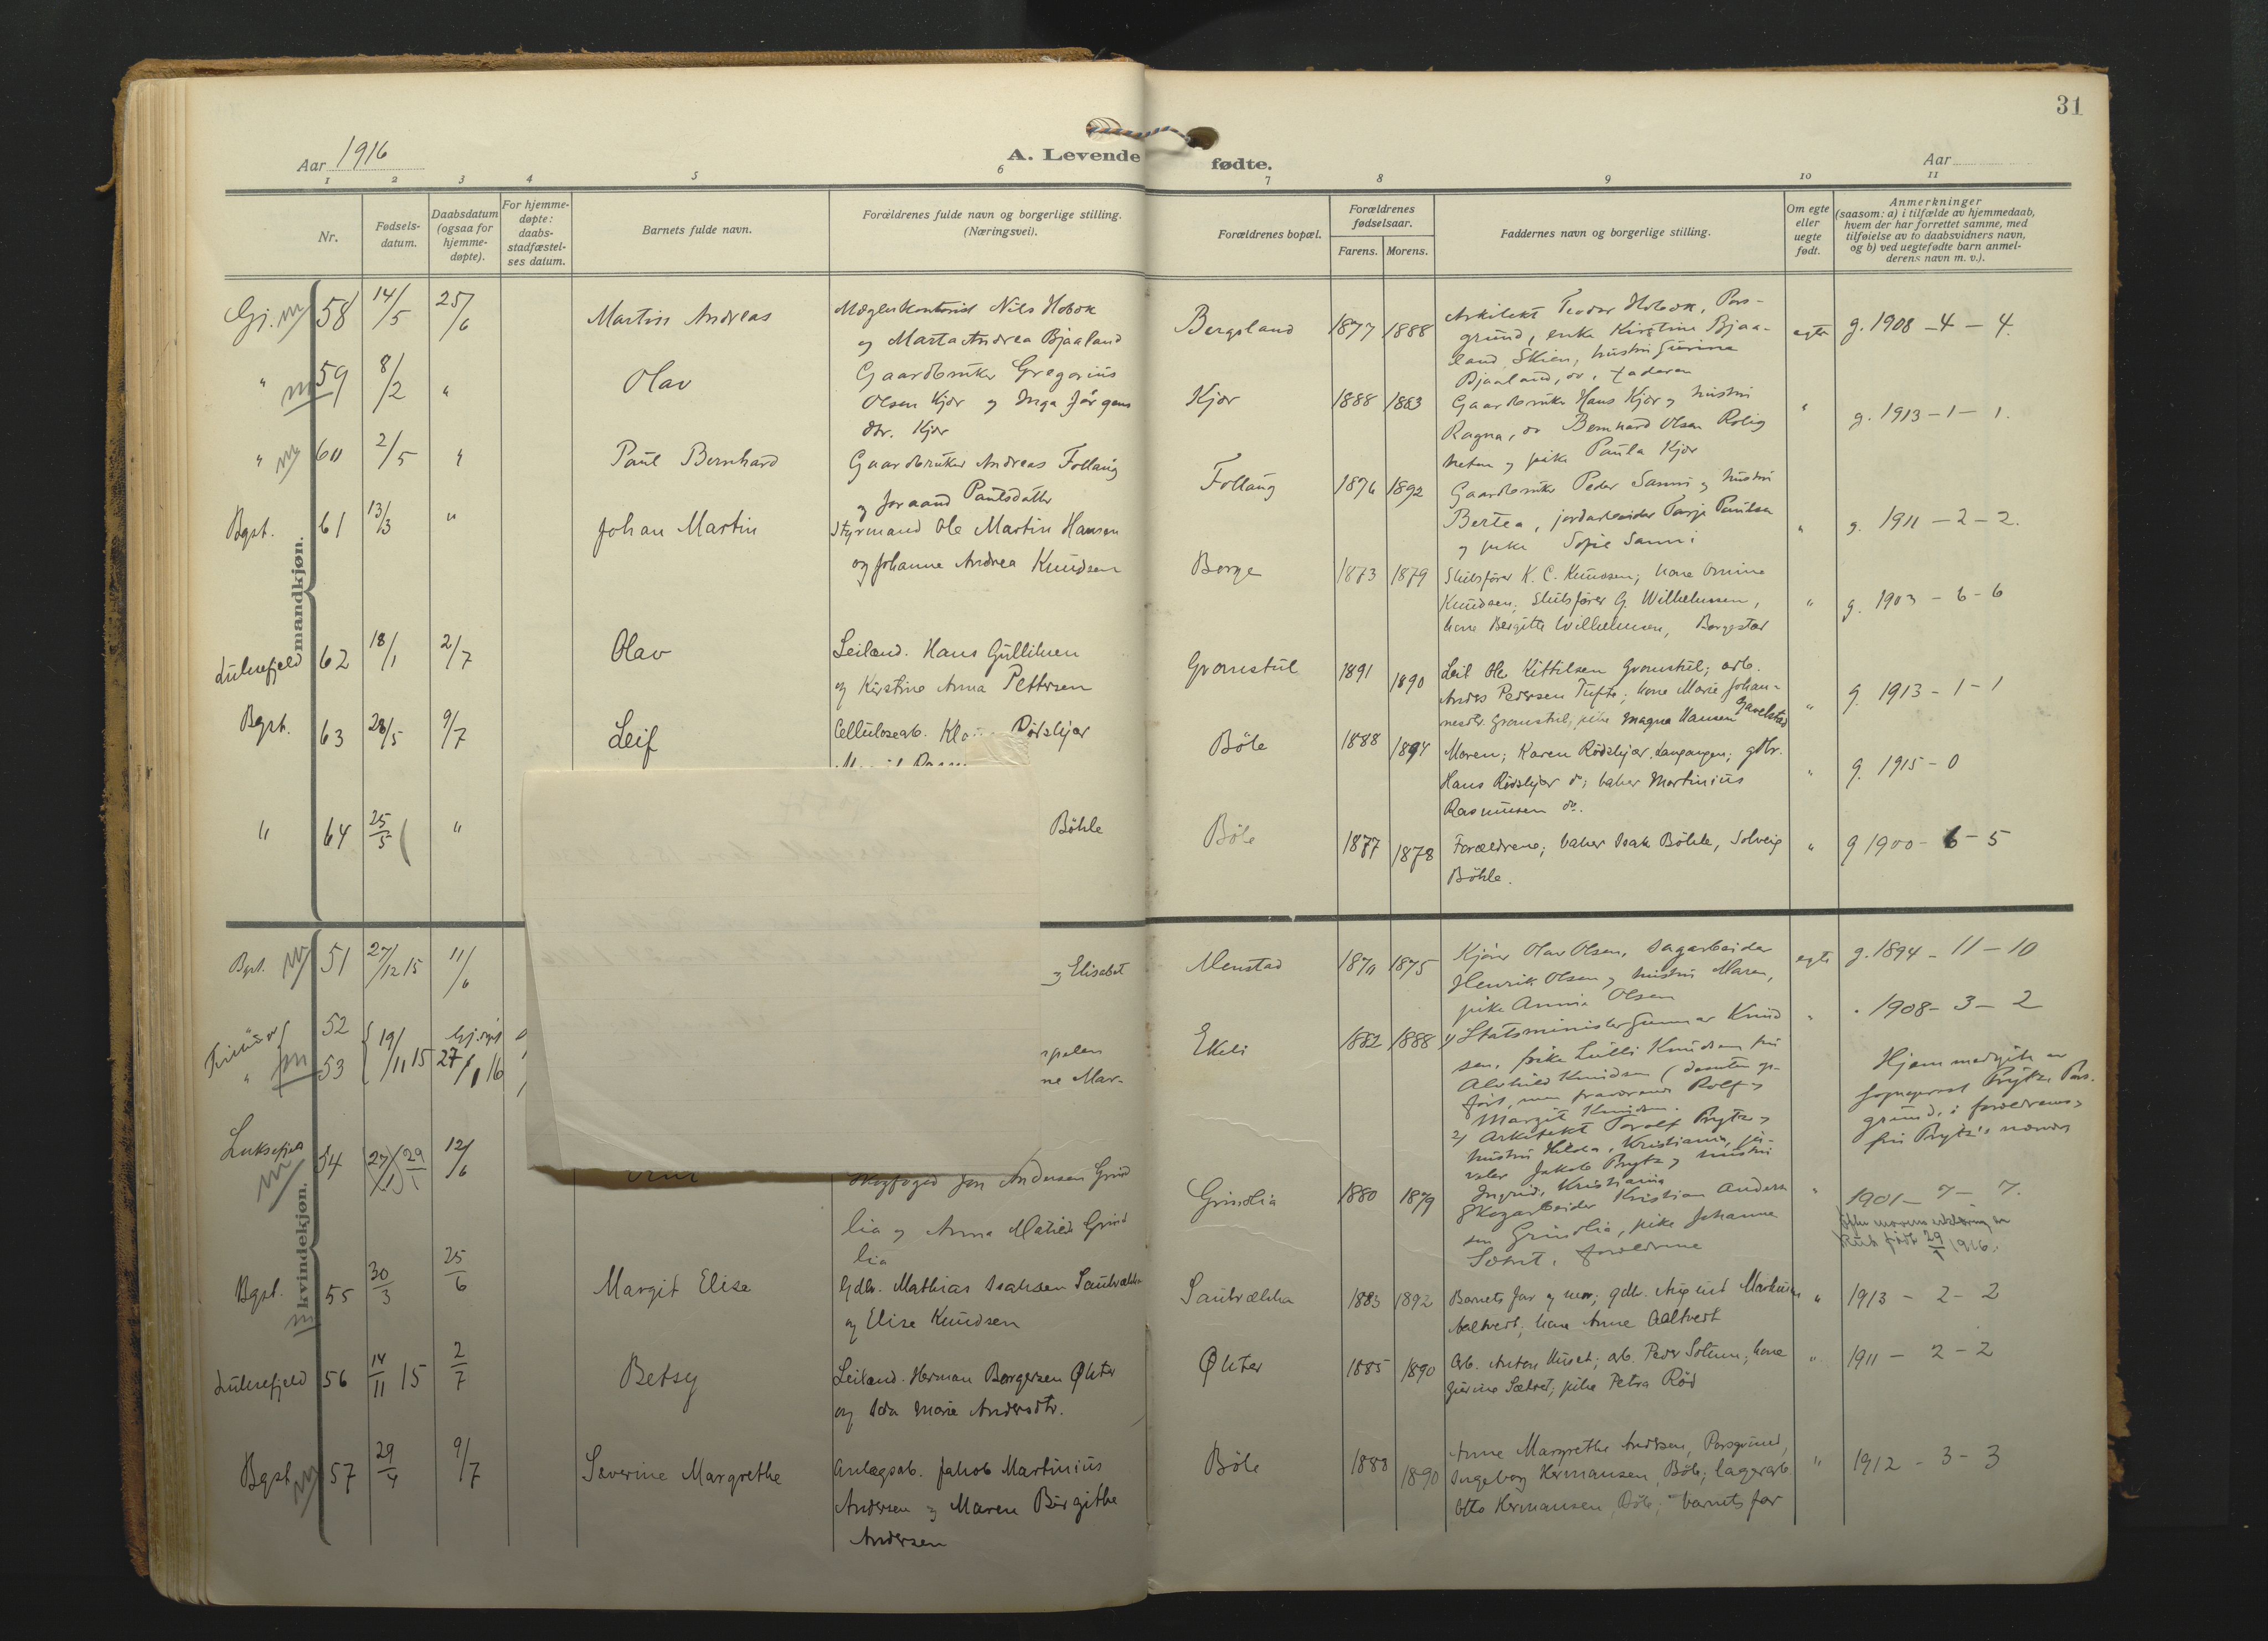 31
Aar 1916
A. Levende fødte.
Aar
1 2 3 4 5 6 7 8 9 10 11
Nr.
Fødsels-
datum.
Daabsdatum
(ogsaa for
hjemme-
døpte).
For hjemme-
døpte:
daabs-
stadfæstel-
ses datum.
Barnets fulde navn.
Forældrenes fulde navn og borgerlige stilling.
(Næringsvei).
Forældrenes bopæl.
Forældrenes
fødselsaar.
Farens. Morens.
Faddernes navn og borgerlige stilling.
Om egte
eller
uegte
født.
Anmerkninger
(saasom: a) i tilfælde av hjemmedaab,
hvem der har forrettet samme, med
tilføielse av to daabsvidners navn,
og b) ved uegtefødte barn anmel-
derens navn m. v.).
mandkjøn.
Gj. 58 14/5 25/6
Martin Andreas
Nils Hobæk
og Marta Andrea Bjaaland
Bergsland 1877 1888
Arkitekt Teodor Hobæk, Pors-
grund, enke Kirstine Bjaa-
land, Skien, hustru Gurine
Bjaaland, do, faderen
egte g. 1908 - 4 - 4.
" 59 8/2 "
Olav
Gaardbruker Gregorius
Olsen Kjær og Inga Jørgens
dtr. Kjær
Kjær 1888 1883
Gaardbruker Hans Kjær og hustru
Ragna, do Bernhard Olsen Rolig
heten og pike Paula Kjær
" g. 1913 - 1 - 1.
" 60 2/5 "
Paul Bernhard
Gaardbruker Andreas Follaug
og Joraand Paulsdatter
Follaug 1876 1892
Gaardbruker Peder Sanni og hustru
Bertea, jordarbeider Tarje Paulsen
og pike Sofie Sanni
" g. 1911 - 2 - 2.
Bgst. 61 13/3 "
Johan Martin
Styrmand Ole Martin Hansen
og Johanne Andrea Knudsen
Borge 1873 1879
Skibsfører K. C. Knudsen; kone
Knudsen; Skibsfører G. Wilhelmsen,
kone Bergitte Wilhelmsen, Borgestad
" g. 1903 - 6 - 6
Luksefjeld 62 18/1 2/7
Olav
Leilænd. Hans Gulliksen
og Kirstine Anna Pettersen
Gromstul 1891 1890
Leil Ole Kittilsen Gromstul; arb.
Anders Pedersen Tufte; kone Marie Johan-
nesdtr. Gromstul, pike Magna Hansen Gavelstad
" g. 1913 - 1 - 1
Bgst. 63 28/5 9/7
Leif
Cellulosearb. Rødskjær
Böle 1888 1894
Moren; Karen Rødskjær, Langangen; gdbr.
Hans Rødskjær do; baker Martinius
Rasmussen do.
" g. 1915 - 0
" 64 25/5 "
Böhle
Böle 1877 1878
Forældrene; baker Isak Böhle, Solveig
Böhle.
" g 1900 - 6 - 5
kvindekjøn.
Bgst. 51 27/12 15 11/6
og Elisabet
Menstad 1870 1875
Olav Olsen, Sagarbeider
Henrik Olsen og hustru Maren,
pike Annie Olsen
egte g. 1894 - 11 - 10
52
53 19/11 15 27/1 16
ne Mar-
Ekeli 1882 1888
1) Statsminister Gunnar Knud
sen, frøken Lulli Knudsen, fru
Alvhild Knudsen
Rolf og
Margit Knudsen.
2) Arkitekt Torolf Prytz og
hustru Hilda, Kristiania, ju-
veler Jakob Prytz og hustru
Ingrid, Kristiania
" 1908 - 3 - 2
Hjemmedøpte av
sogneprest Prytz, Pors-
grund, i forældrenes og
fru Prytz's nærvær
54 27/1 29/1 12/6
Skogfoged Jon Andersen Grind
lia og Anna Matilde Grind
lia
Grindlia 1880 1879
Skogarbeider Kristian Anders
sen Grindlia, pike Johanne
forældrene
" 1901 - 7 - 7.
født 29/1 1916.
Bgst. 55 30/3 25/6
Margit Elise
Gdbr. Mathias Isaksen Saubrækka
og Elise Knudsen
Saubrækka 1883 1892
Barnets far og mor; gdbr. Aaltvert; kone Anne Aaltvert
" 1913 - 2 - 2
Luksefjeld 56 14/11 15 2/7
Betsy
Leilænd. Herman Borgersen Økter
og Ida Marie Andersdtr.
Økter 1885 1890
Arb. Anton Huset; arb. Peder Solum; kone
Gurine Sætret; pike Petra Rød
" 1911 - 2 - 2
Bgst. 57 29/4 9/7
Severine Margrethe
Anlægsarb. Jakob Martinius
Andersen og Maren Birgithe
Andersen
Böle 1888 1890
Anne Margrethe Andersen, Porsgrund,
Ingeborg Hermansen, Böle; lagerarb
Otto Hermansen, Böle; barnets far
" 1912 - 3 - 3